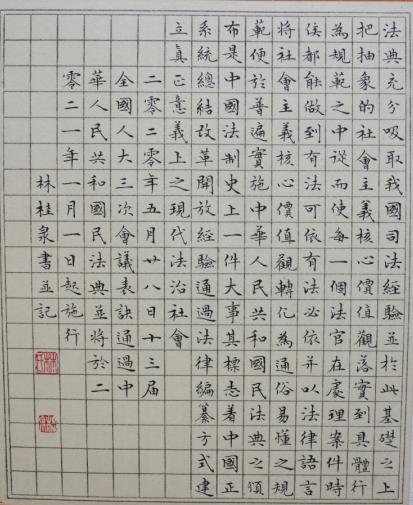 法典充分吸取我國司法經驗並於此基礎之上
把抽象的社會主義核心價值觀落實到具體行
為規範之中從而使每一個法官在處理案件時
侯都能做到有法可依有法必依并以法律語言
將社會主義核心價值觀轉化為通俗易懂之規
範便於普遍實施中華人民共和國民法典之頒
布是中國法制史上一件大事其標志着中國正
系統總結改革開放經驗通過法律編纂方式建
立真正意義上之現代法治社會
二零二零年五月廿八日十三届
全國人大三次會議表決通過中
華人民共和國民法典並將於二
零二一年一月一日起施行
林桂泉書並記